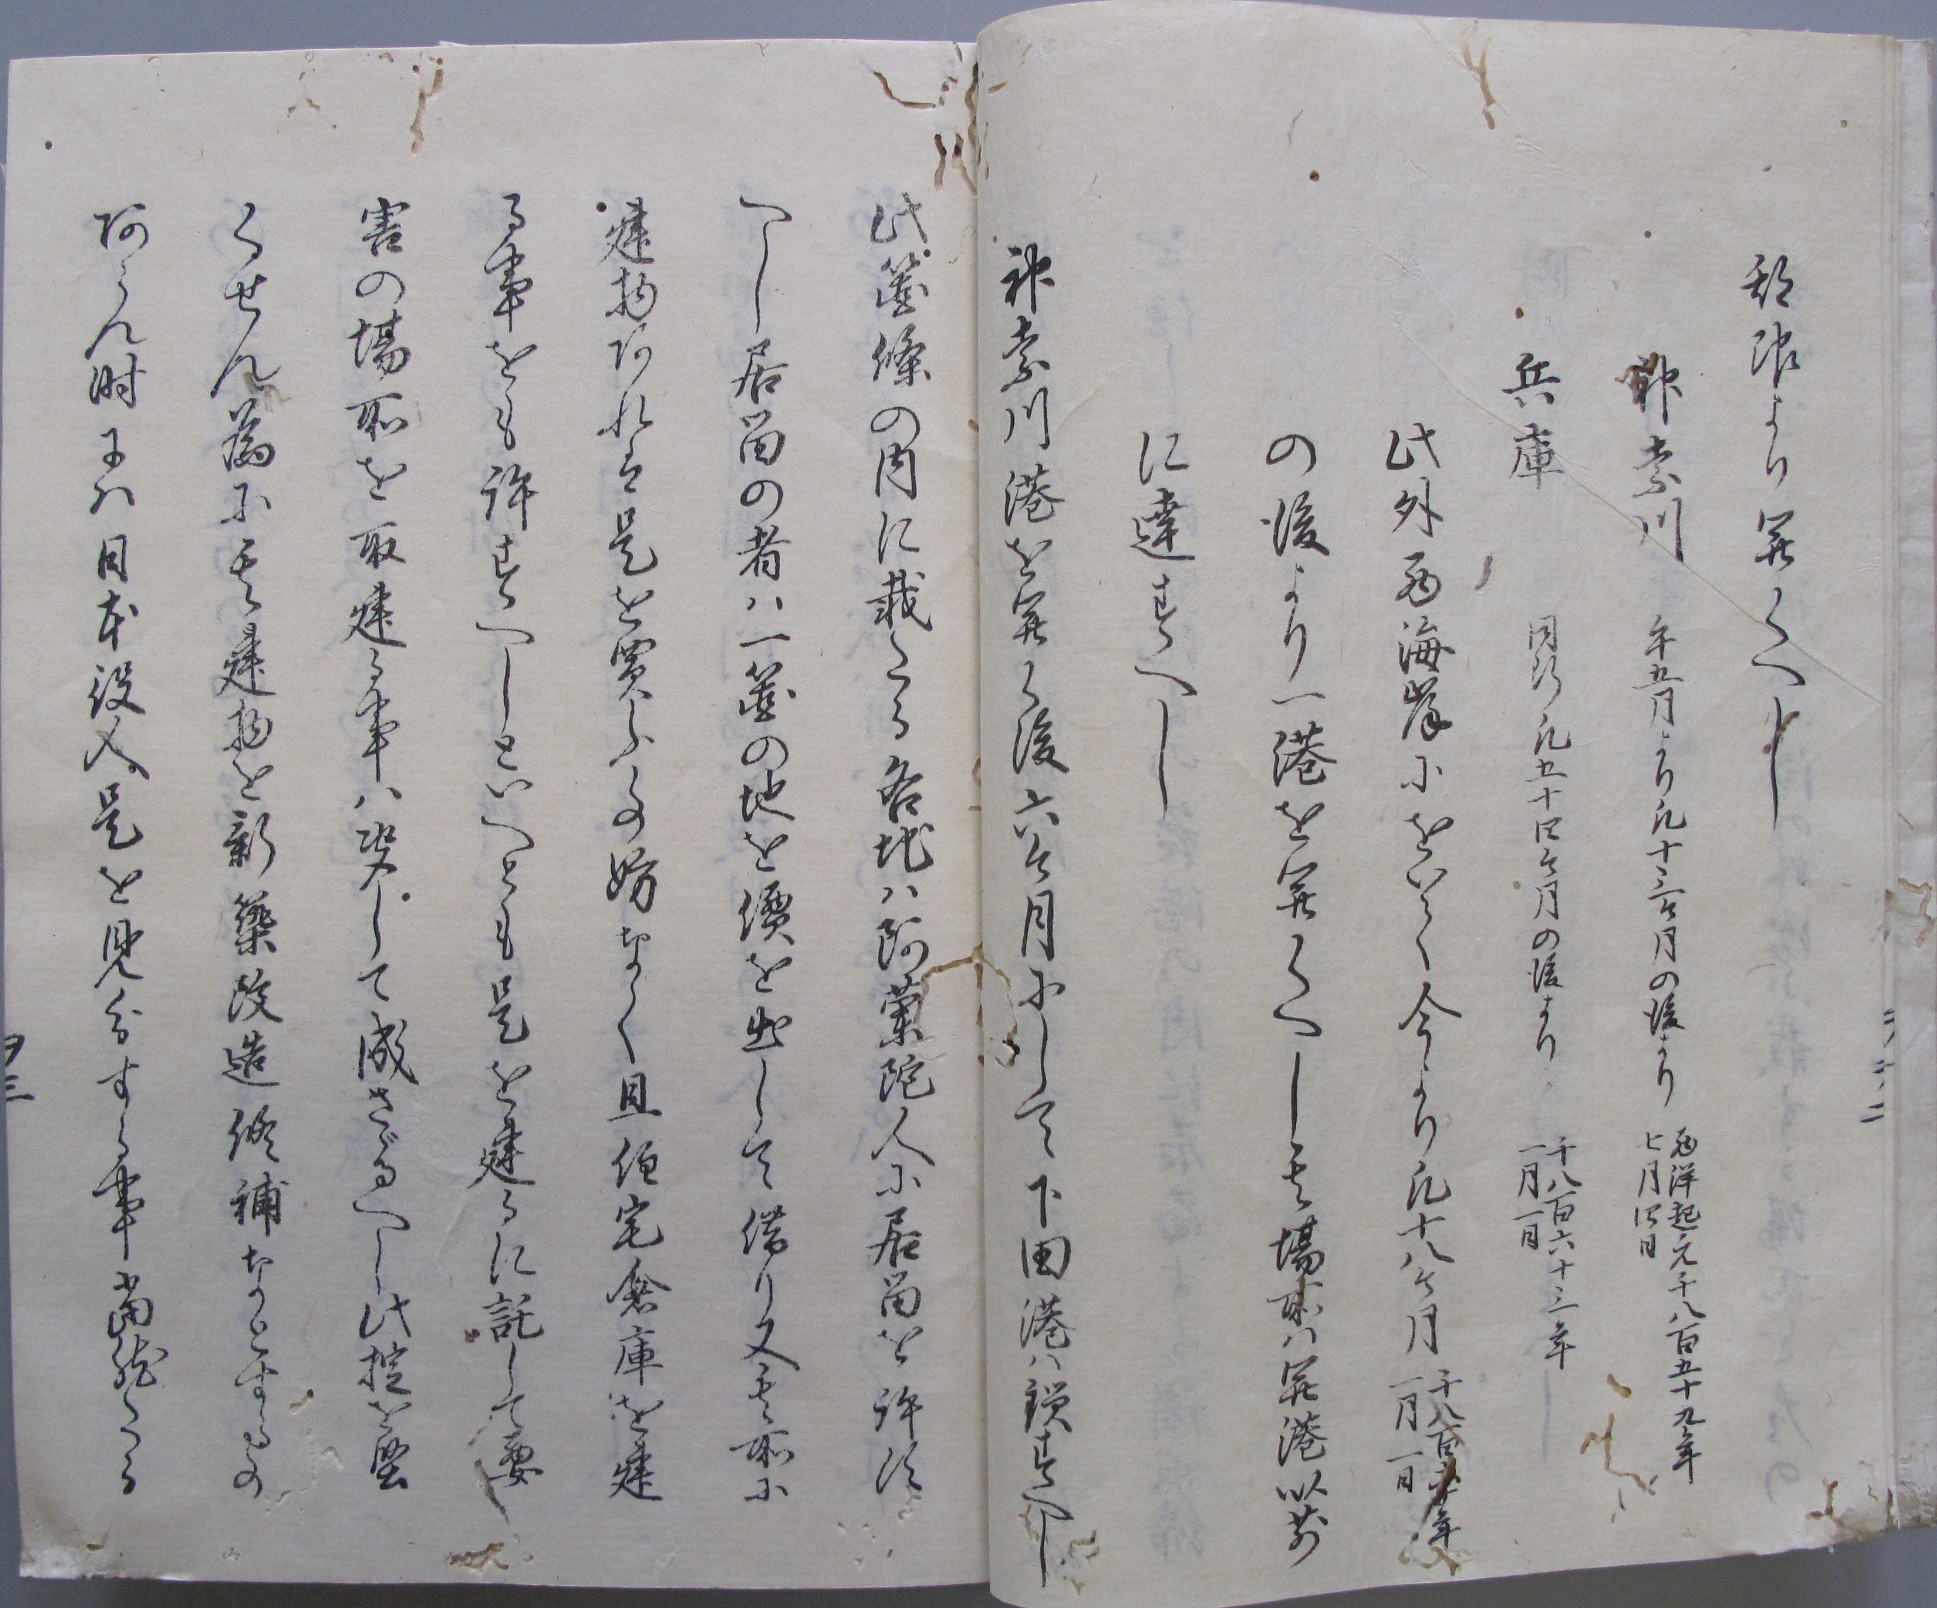 期限より開くへし
神奈川 午五月より凡十三ケ月の後より 西洋紀元千八百五十九年
七月四日
兵庫 同断凡五十四ケ月の後より 千八百六十三年
一月一日
此外西海岸にをいて今より凡十八ケ月 千八百六十年
一月一日
の後より一港を開くへし其場所ハ開港以前
に達すへし
神奈川港を開く後六ケ月にして下田港ハ鎖すへし
此箇條の内に載たる各地ハ阿蘭陀人に居留を許す
へし居留の者ハ一箇の地を價を出して借り又其所に
建物あれは是を買ふ事妨なく且住宅倉庫を建
る事をも許すへしといへとも是を建るに託して要
害の場所を取建る事ハ決して成さゞるへし此掟を堅
くせん為に其建物を新築改造修補なとする事
あらん時にハ日本役人是を見分する事當然たる